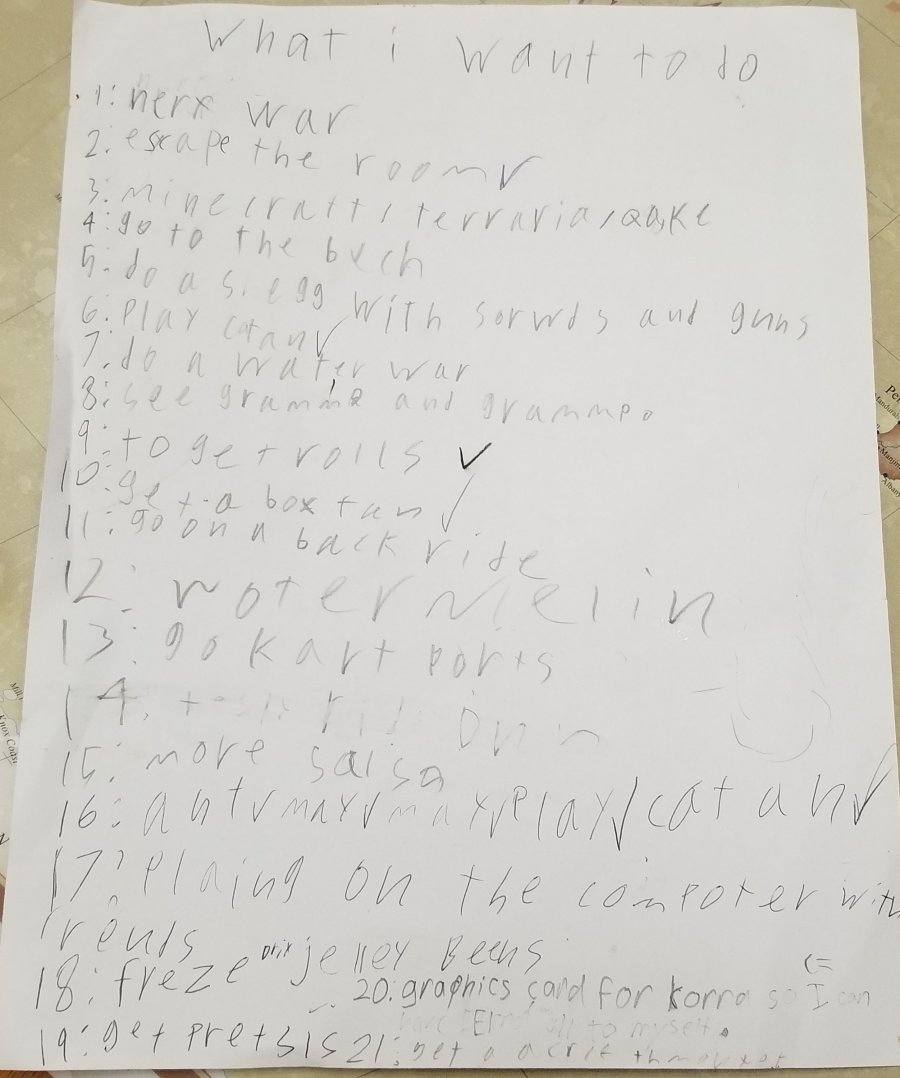 What i want to do
1: nerf war
2. escape the room ✓
3: minecraft / terraria / Quake
4: go to the bech
5. do a siegg with sorwds and guns
6: Play catan ✓
7. do a water war
8: see gramma and grammpo
9: to get rolls ✓
10: get a box tan ✓
11: go on a back ride
12: woter melin
13: go kart ports
14.
15: more salsa
16: ant ✓ max ✓ max ✓ Play ✓ catan ✓
17: Plaing on the compoter with
frends
18: freze jelley Beens
20: graphics card for korra so I can
to myself.
19: get pretsls
21: get a